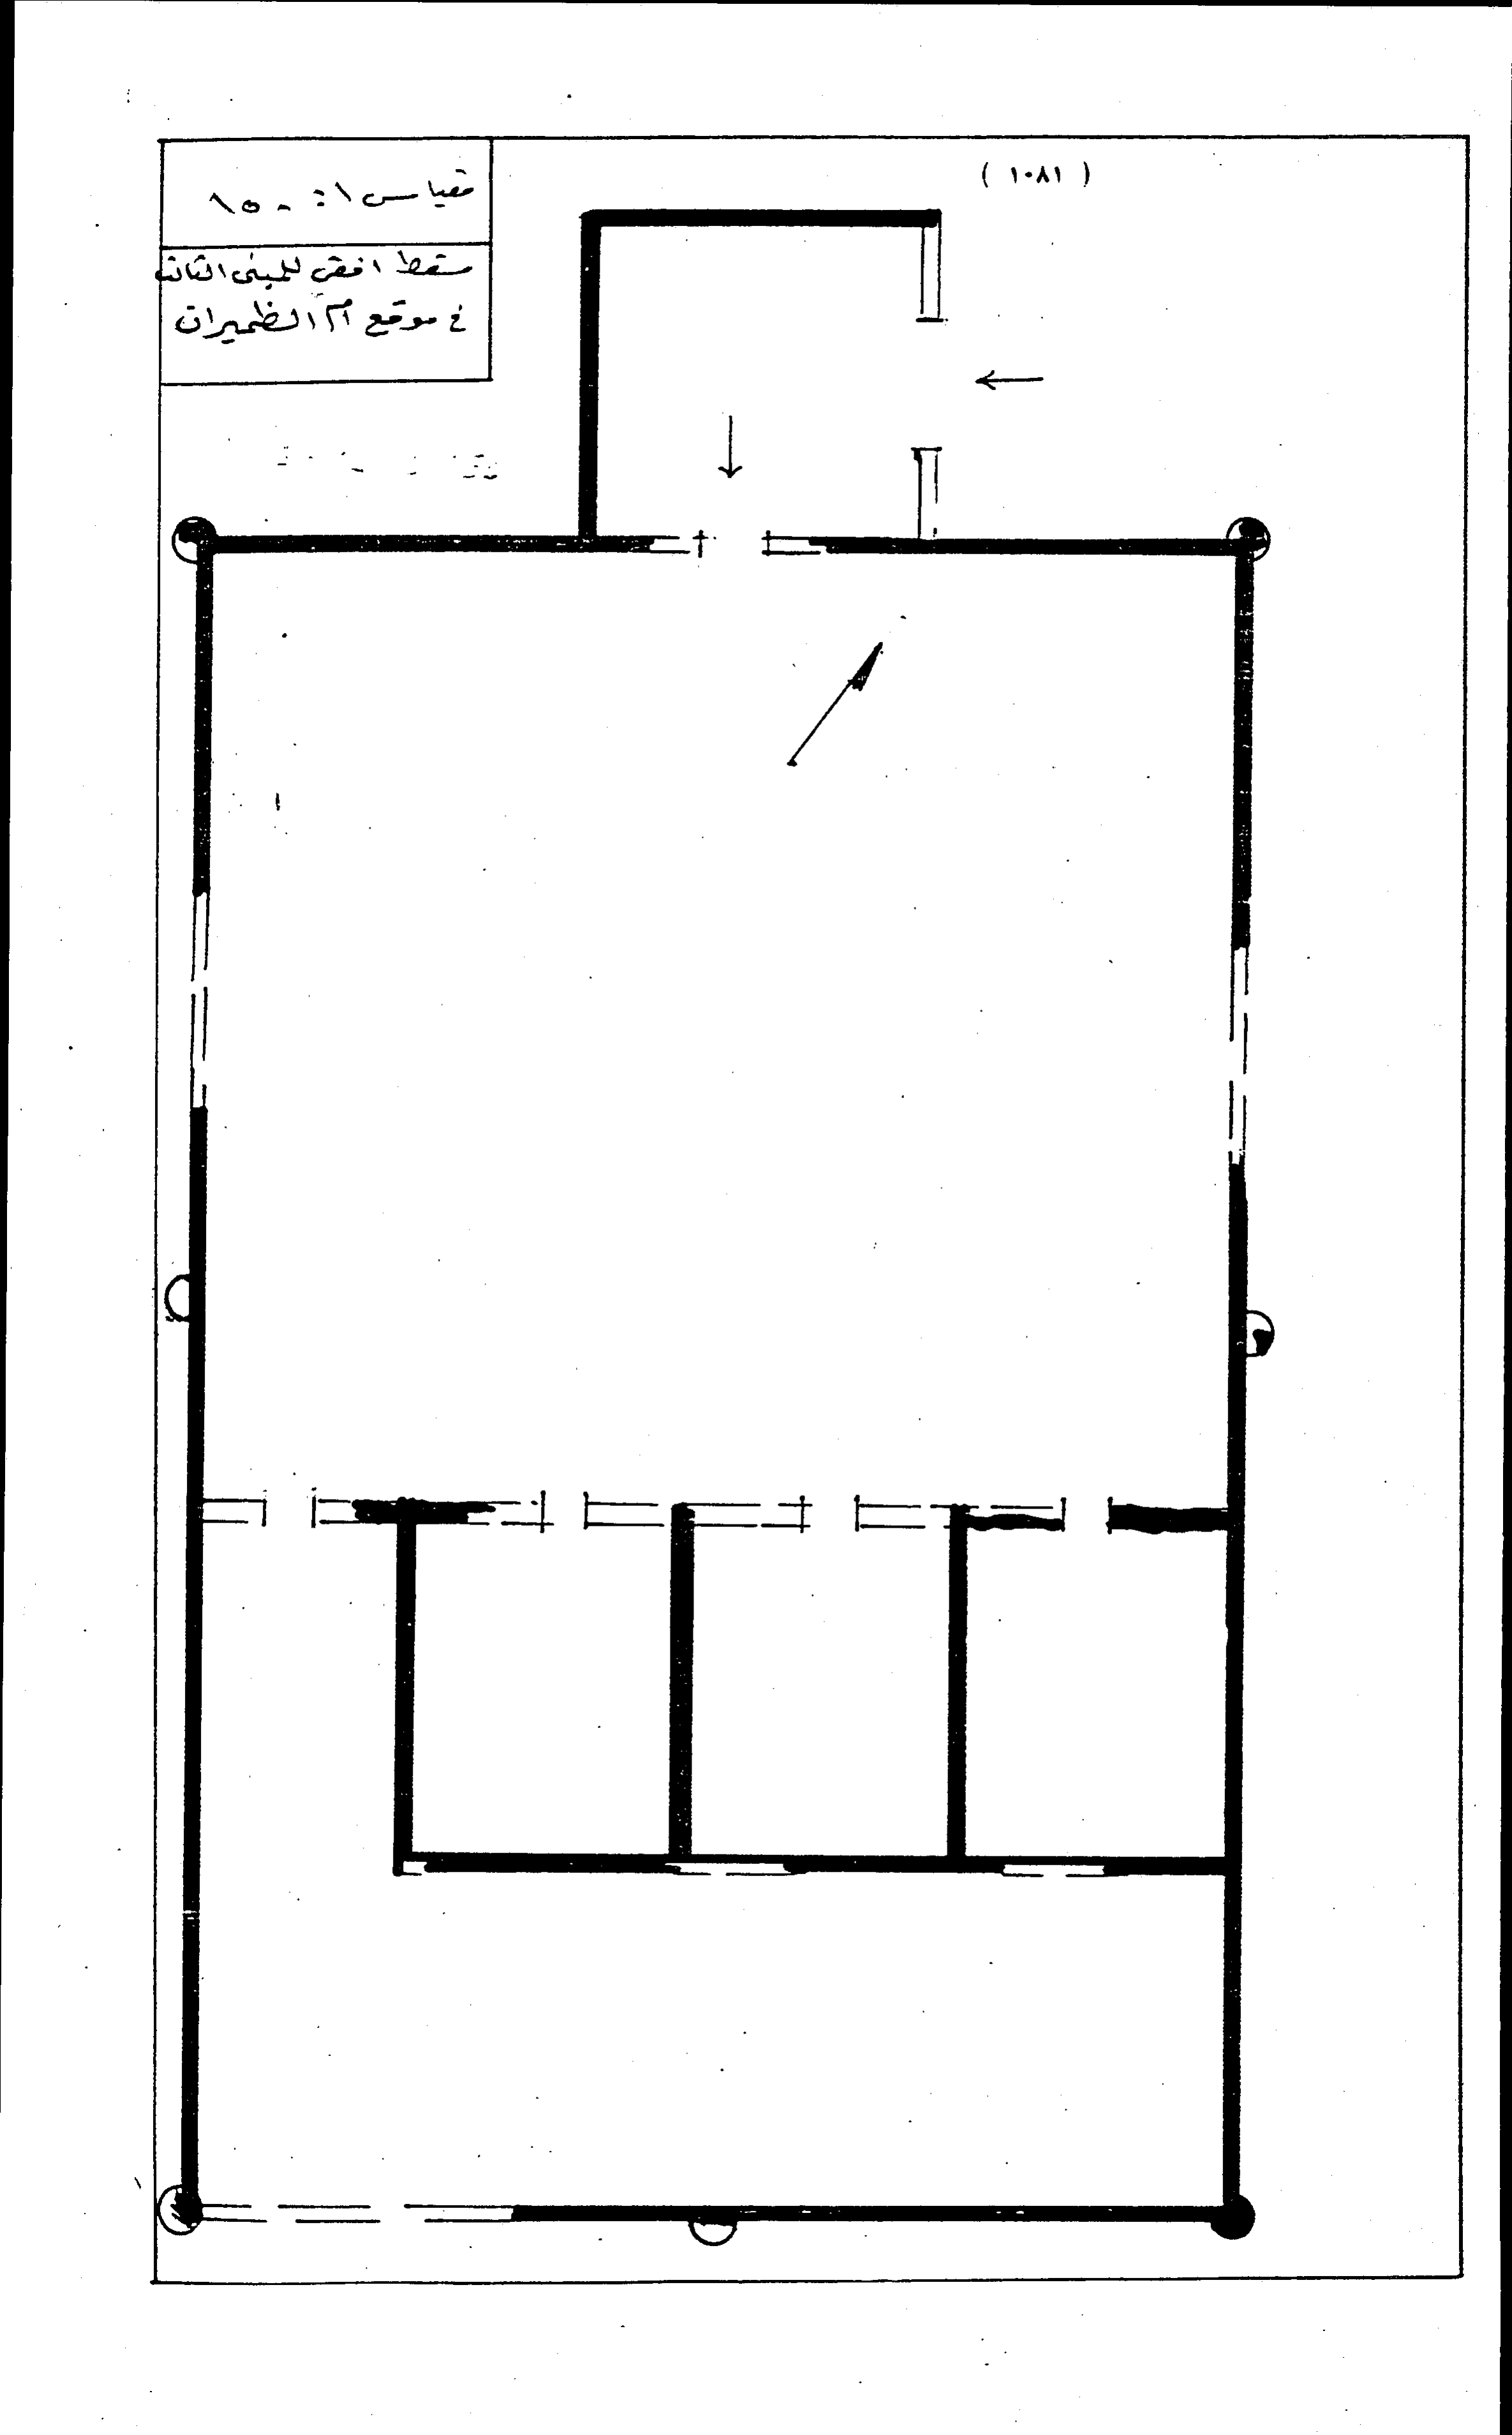 ( ١٠٨١ )
مقياس ١ : ١٥٠
مسقط افقي للمبنى الثالث
في موقع ام الظميران